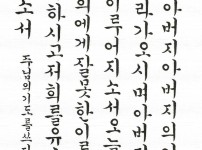 아버지아버지의
라가오시며아버지
이루어지소서오늘
희에게잘못한이를
하시고저희를유
소서
주님의기도를쓰다